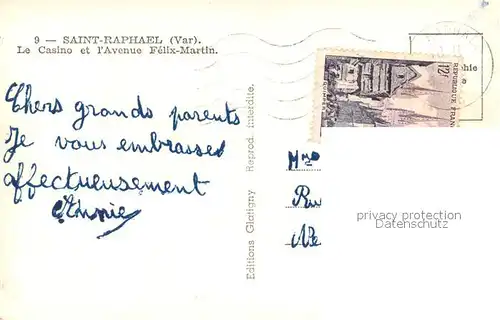 9 — SAINT-RAPHAEL (Var).
Le Casino et l'Avenue Félix-Martin.
Chers grands parents
Je vous embrasses
affectueusement
Annie
Editions Glatigny Reprod. interdite.
12f
REPUBLIQUE FRANC
phie
Mme
privacy protection
DarabanthCollections